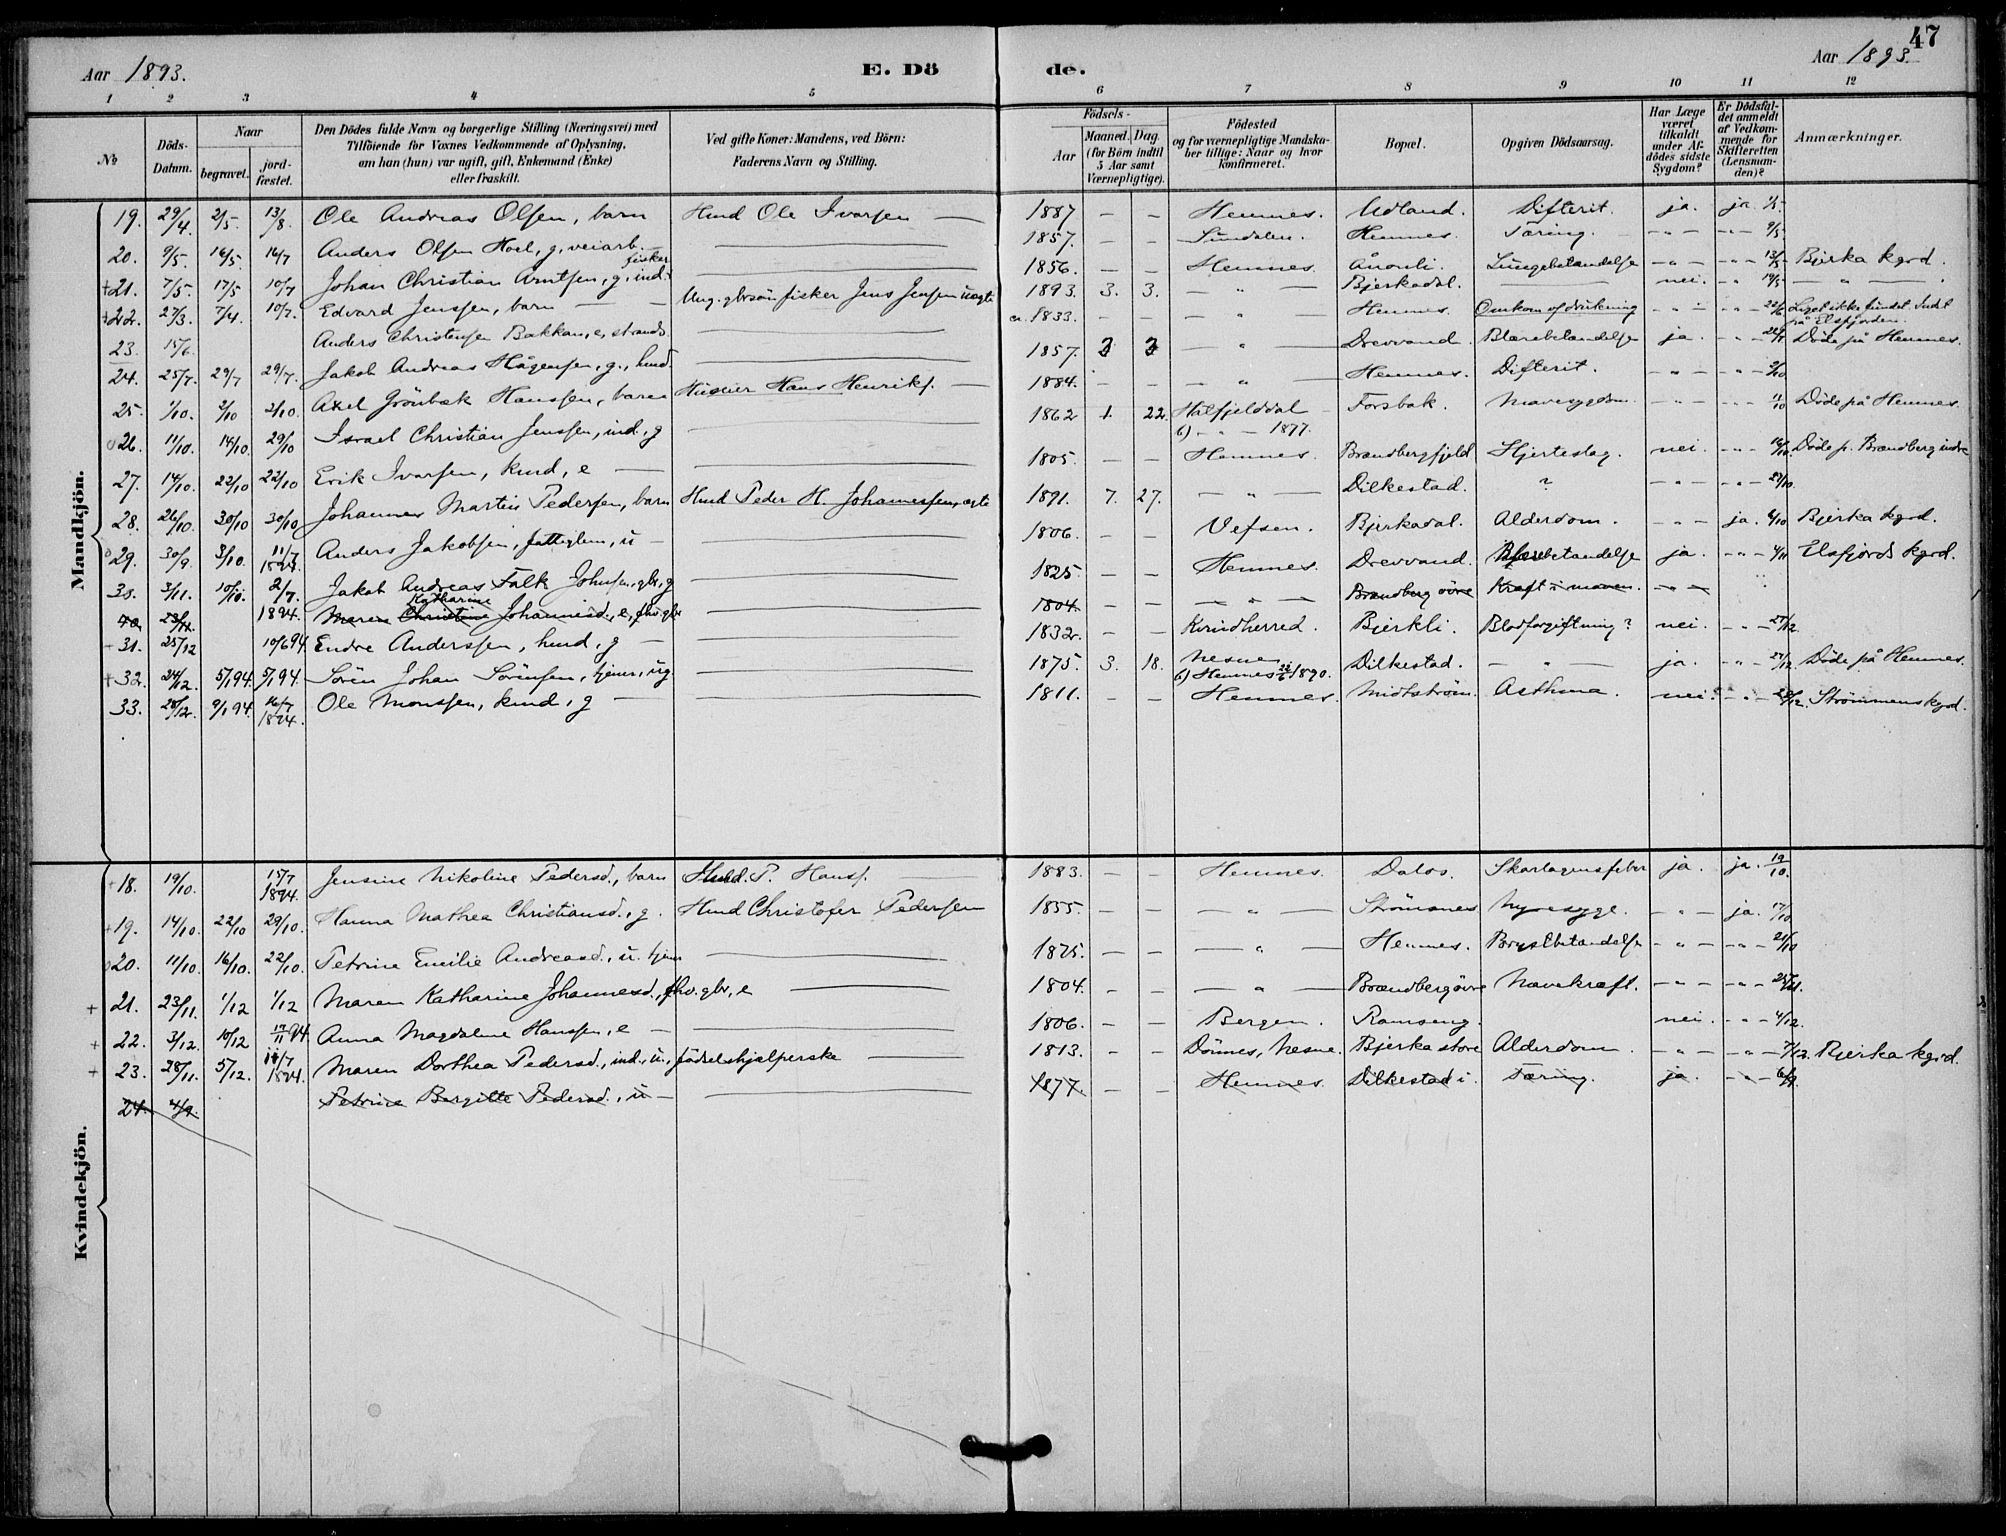 47
Aar 1893. E. Dö de. Aar 1893.
1 2 3 4 5 6 7 8 9 10 11 12
No Döds-Datum. Naar begravet. jord-fæstet. Den Dödes fulde Navn og borgerlige Stilling (Næringsvei) med Tilföiende for Voxnes Vedkommende af Oplysning, om han (hun) var ugift, gift, Enkemand (Enke) eller fraskilt. Ved gifte Koner: Mandens, ved Börn: Faderens Navn og Stilling. Födsels- Aar Maaned. Dag. (for Börn indtil 5 Aar samt Værnepligtige). Födested og for værnepligtige Mandskaber tillige: Naar og hvor konfirmeret. Bopæl. Opgiven Dödsaarsag. Har Læge været tilkaldt under Afdödes sidste Sygdom? Er Dödsfaldet anmeldt af Vedkommende for Skifteretten (Lensmanden)? Anmærkninger.
Mandkjön.
19. 29/4 2/5- 13/8. Ole Andreas Olsen, barn Hmd Ole Ivarsen — 1887 — — Hemnes. Udland. Difterit. ja. ja.
20. 9/5. 16/5. 16/7 Anders Olsen Hoel, g, veiarb. — 1857. — — Sundalen. Hemnes. Tæring. — " — — " — 9/5.
+21. 7/5. 17/5 10/7 Johan Christian Arntsen, g, ind. fisker — 1856. — — Hemnes. Ånonli. Lungebetændelse — " — — " — 13/5 Bjerka kgrd.
+22. 27/3. 7/4. 10/7. Edvard Jenssen, barn — Ung. gbrsön fisker Jens Jensen uægte 1893. 3. 3. — " — Bjerkadal. — nei. — " — 19/5 — " —
23. 15/6. Anders Christensen Bakkan, e, strands. — ca. 1833. — — — " — Hemnes. Omkom af drukning — " — — " — 22/6 Liget ikke fundet. Indt. på Elsfjorden.
24. 25/7. 29/7 29/7. Jakob Andreas Hågensen, g., hmd. — 1857. — " — Drevvand. Blærebetændelse ja. — " — Döde på Hemnes.
25. 1/10. 2/10 2/10. Axel Grönbæk Hanssen, barn Huseier Hans Henriks. — 1884. — — — " — Hemnes. Difterit. — " — — " — 2/10
026. 11/10. 14/10. 29/10 Israel Christian Jenssen, ind, g — 1862 1. 22. Hatfjelddal 6) — " — 1877. Forsbak. Mavesygdom. — " — — " — 11/10 Döde på Hemnes.
27. 14/10. 22/10 22/10 Erik Ivarsen, kmd, e — 1805. — — Hemnes. Brændbergfjeld Hjerteslag. nei. — " — 16/10 Döde p. Brændberg indre
28. 26/10. 30/10 30/10 Johannes Martin Pedersen, barn Hmd Peder H. Johannessen, ægte 1891. 7. 27. — " — Dilkestad. ? — " — — " — 27/10.
029. 30/9. 3/10. 11/7 1894. Anders Jakobsen, fattiglem, u — 1806. — — Vefsen. Bjerkadal. Alderdom. — " — ja. 6/10 Bjerka kgrd.
30. 3/11. 10/11. 2/7. Jakob Andreas Falk Johnsen, gbr, g — 1825 — — Hemnes. Drevvand. Blærebetændelse ja. — " — 4/11 Elsfjords kgrd.
23/11. 1894. Maren Christine Katharine Johannesd., e, fhv. gbr — 1804. — — — " — Brændberg övre Kræft i maven. — " —
+31. 25/12 10/6 94. Endre Anderssen, hmd, g — 1832. — — Kvindherred. Bjerkli. Blodforgiftning? nei. — " — 27/12.
+32. 24/12. 5/1 94. 5/1 94. Sören Johan Sörensen, tjener, ug. — 1875. 3. 18. Nesne 6) Hemnes 1890. Dilkestad. — " — ja. — " — 27/12. Döde på Hemnes.
33. 28/12. 9/1 94. 16/7 1894. Ole Monssen, kmd, g — 1811. — — Hemnes. Midtström. Asthma. nei. — " — 28/12. Strömmens kgrd.
Kvindekjön.
+18. 19/10. 15/7 1894. Jensine Nikoline Pedersd., barn Hmd. P. Hansf. — 1883. — — Hemnes. Dalos. Skarlagensfeber ja. ja. 19/10.
+19. 14/10. 22/10 29/10. Hanna Mathea Christiansd., g. Hmd Christofer Pedersen 1855. — — — " — Strömsnes Nyresyge. — " — ja. 17/10
020. 11/10. 16/10. 22/10. Petrine Emilie Andreasd., u. tjener — 1875. — — — " — Hemnes. Brystbetændelse — " — — " — 21/10
+ 21. 23/11. 1/12 1/12 Maren Katharine Johannesd., fhv. gbr, e — 1804. — — — " — Brændberg övre Mavekræft. — " — — " — 25/11.
+ 22. 3/12. 10/12 94. Anna Magdalene Hanssen, e — 1806. — — Bergen. Ramseng. nei. — " — 4/12.
+ 23. 28/11. 5/12. 11/7 1894. Maren Dorthea Pedersd., ind., u., födselshjælperske — 1813. — — Dönnes, Nesne. Bjerka store Alderdom. — " — — " — 7/12. Bjerka kgrd.
24. 4/9. Petrine Bergitte Pedersd., u — 1877. — — Hemnes. Dilkestad i. Tæring. ja. — " — 6/9.